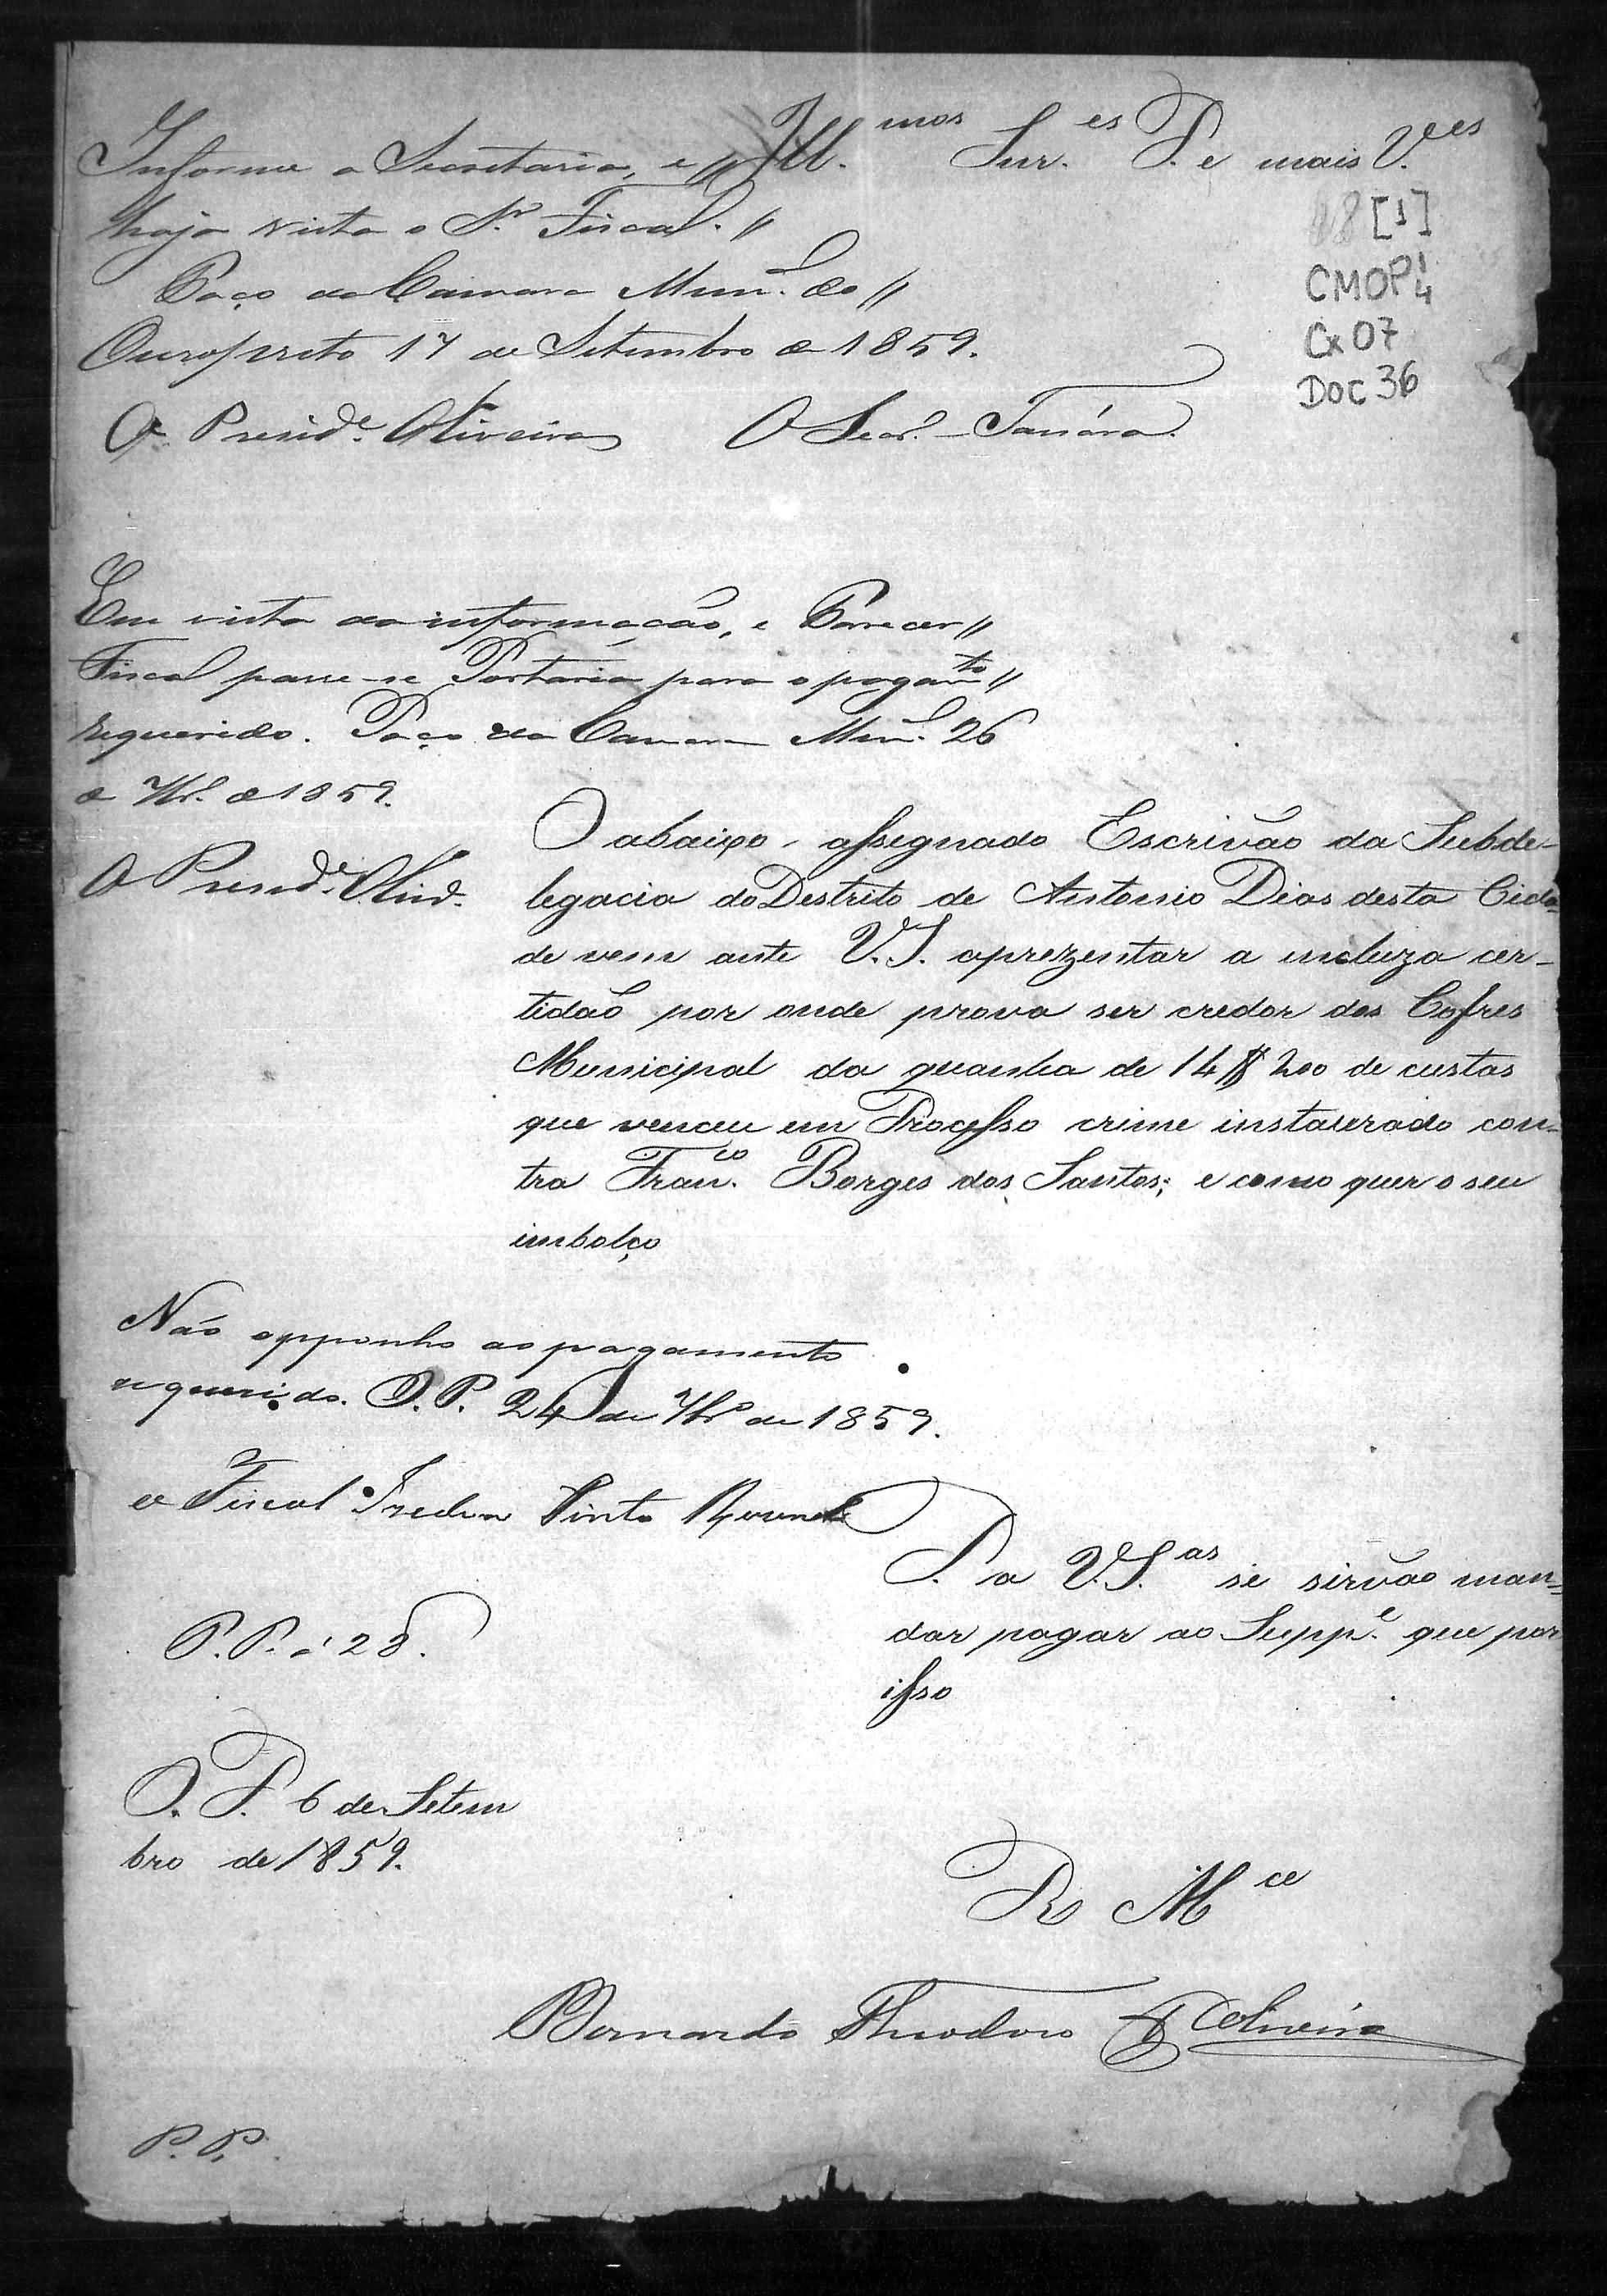 Illmos Snr.es P. e mais V.es
Informe a Secretaria, e //
haja vista o Sr. Fiscal. //
Paço da Camara Munl. do //
Ouropreto 17 de Setembro de 1859.
O Preside. Oliveira O Secr.
98 [1]
CMOP 1/4
Cx 07
DOC 36
Em vista da informação, e Parecer //
Fiscal passe-se Portaria para o pagamto //
requerido. Paço da Camara Munl. 26
de 7br. de 1859.
O Preside. Olivr.
O abaixo-assegnado Escrivão da Subde-
legacia do Destrito de Antonio Dias desta Cida-
de vem ante V.S. aprezentar a incluza cer-
tidão por onde prova ser credor dos Cofres
Municipal da quantia de 14$200 de custas
que venceu em Processo crime instaurado con-
tra Franco. Borges dos Santos; e como quer o seu
imbolço
Não opponho ao pagamento
requerido. O.P. 24 de 7bro de 1859.
o Fiscal Pinto
P. a V.S.as se sirvão man-
dar pagar ao Suppe. que por
isso
P.P. a 28.
O. P. 6 de Setem
bro de 1859.
R Mce
Bernardo Theodoro d' Oliveira
P.P.